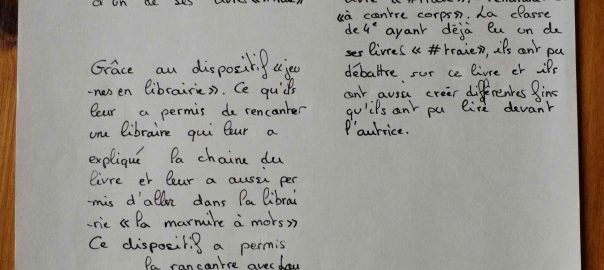 d'un de ses livres
Grâce au dispositif «jeu
-nes en librairie». Ce qu'ils
leur a permis de rencontrer
une libraire qui leur a
expliqué la chaine du
livre et leur a aussi per
-mis d'aller dans la librai
-rie «la marmite à mots»
Ce dispositif a permis
la rencontre avec
«à contre corps». La classe
de 4e ayant déjà lu un de
ses livres « #traie», ils ont pu
débattre sur ce livre et ils
ont aussi créer différentes fins
qu'ils ont pu lire devant
l'autrice.